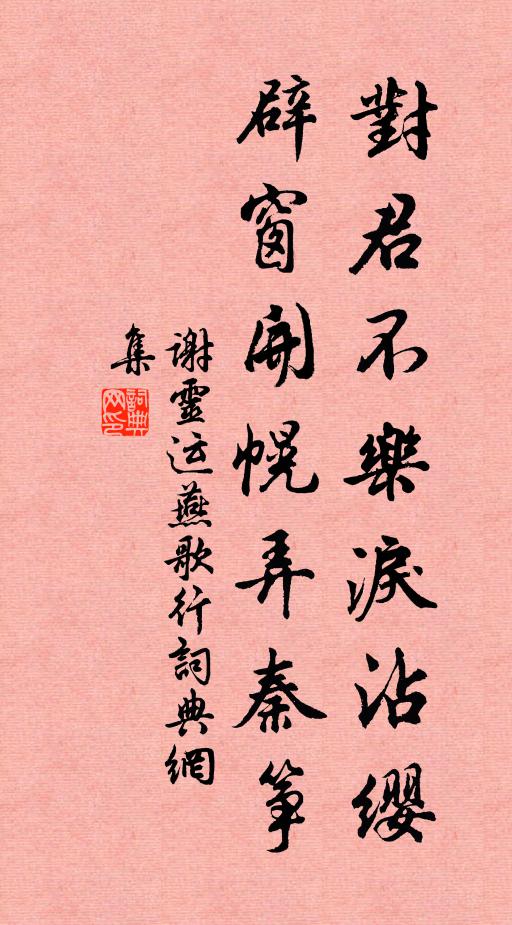 對君不樂淚沾纓
辟窗開幌弄秦箏
謝靈运燕歌行詞典網
集
詞典
网印